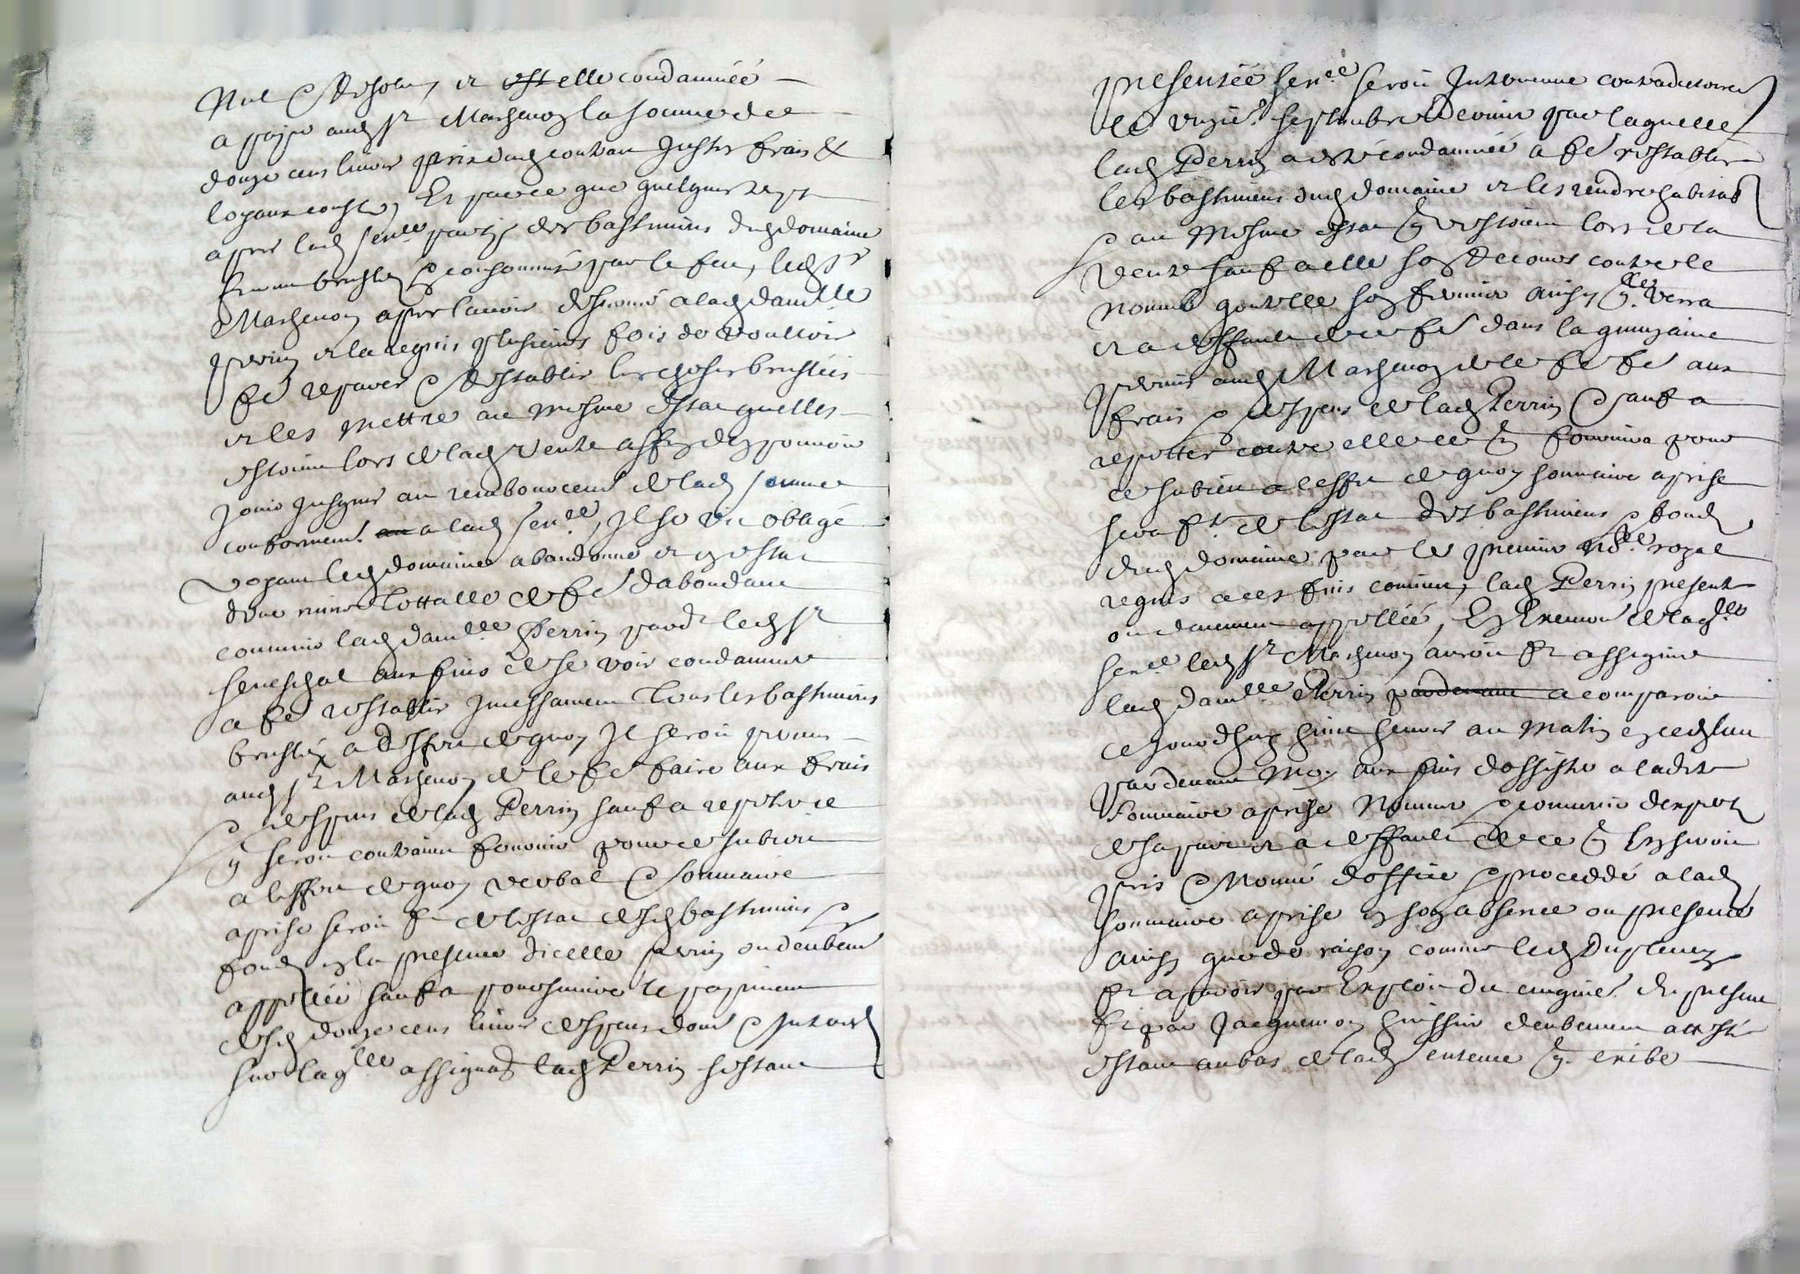 Nul & resolu, et est elle condamnée
a payer aud sr Marchenoy la somme de
douze cens livres prix dud contrat justes frais &
loyaux couts, Et parce que quelques temps
apres lad sence partye des bastimens dud domaine
furent bruslés & consommés par le feu, led sr
Marchenoy apres lavoir desnoncé a lad damlle
perrin et la requis plusieurs fois de vouloir
fe reparer & restablir les choses bruslées
et les mettre au mesme estat quelles
estoient lors de lad vente affin de pouvoir
jouir jusques au rembourcement de lad somme
conformemt a lad sence, Il se vit obligé
voyant led domaine abandonné et en estat
dune ruine tottalle de fe dabondant
convenir lad damlle Perrin pardt led sr
seneschal aux fins de se voir condamner
a fe restablir incessament tous les bastimens
bruslés a deffaut de quoy Il seroit permis
aud sr Marchenoy de le fe faire aux frais
& despens de lad Perrin sauf a repeter ce
q seroit contraint fournir pour ce subiet
a leffet de quoy verbal & sommaire
aprise seroit ft de lestat desd bastimens &
fonds en la presence dicelle perrin ou deubent
appellée sauf a poursuivre le payement
desd douze cens livres despens dom & interests
sur laqlle assigna lad Perrin sestant
presentée sence seroit Intervenue contradictoire
le unzie septembre dernier par laquelle
lad Perrin a esté condamnée a fe restablir
les bastimens dud domaine et les rendre habitab
& au mesme estat q estoient lors de la
vente sauf a elle son recours contre le
nommé son fermier ainsy qlle verra
et a deffault de ce fe dans la quinzaine
permis aud Marchenoy de le fe fe aux
frais & despens de lad Perrin & sauf a
repetter contre elle ce q fournira pour
ce subiet a leffet de quoy sommaire aprise
sera ft de lestat des bastimens & fonds
dud domaine par le premier nore royal
requis a ces fins commis, lad Perrin presente
ou deuement appellée, En Execution de laqlle
sence led sr Marchenoy auroit ft assigner
lad damlle Perrin pardevant a comparoir
ce jourdhuy huit heures au matin en ced lieu
pardevant moy aux fins dassister a ladite
sommaire aprise nommer & convenir dexpertz
de sa part et a deffault de ce q len seroit
pris & nommé doffice & procedé a lad
sommaire aprise en son absence ou presence
ainsy que de raison comme led
ft aparoir par Exploit du cinquie du present
ft par Jacquemon huissier deubement attesté
estant au bas de lad sentence q exibe